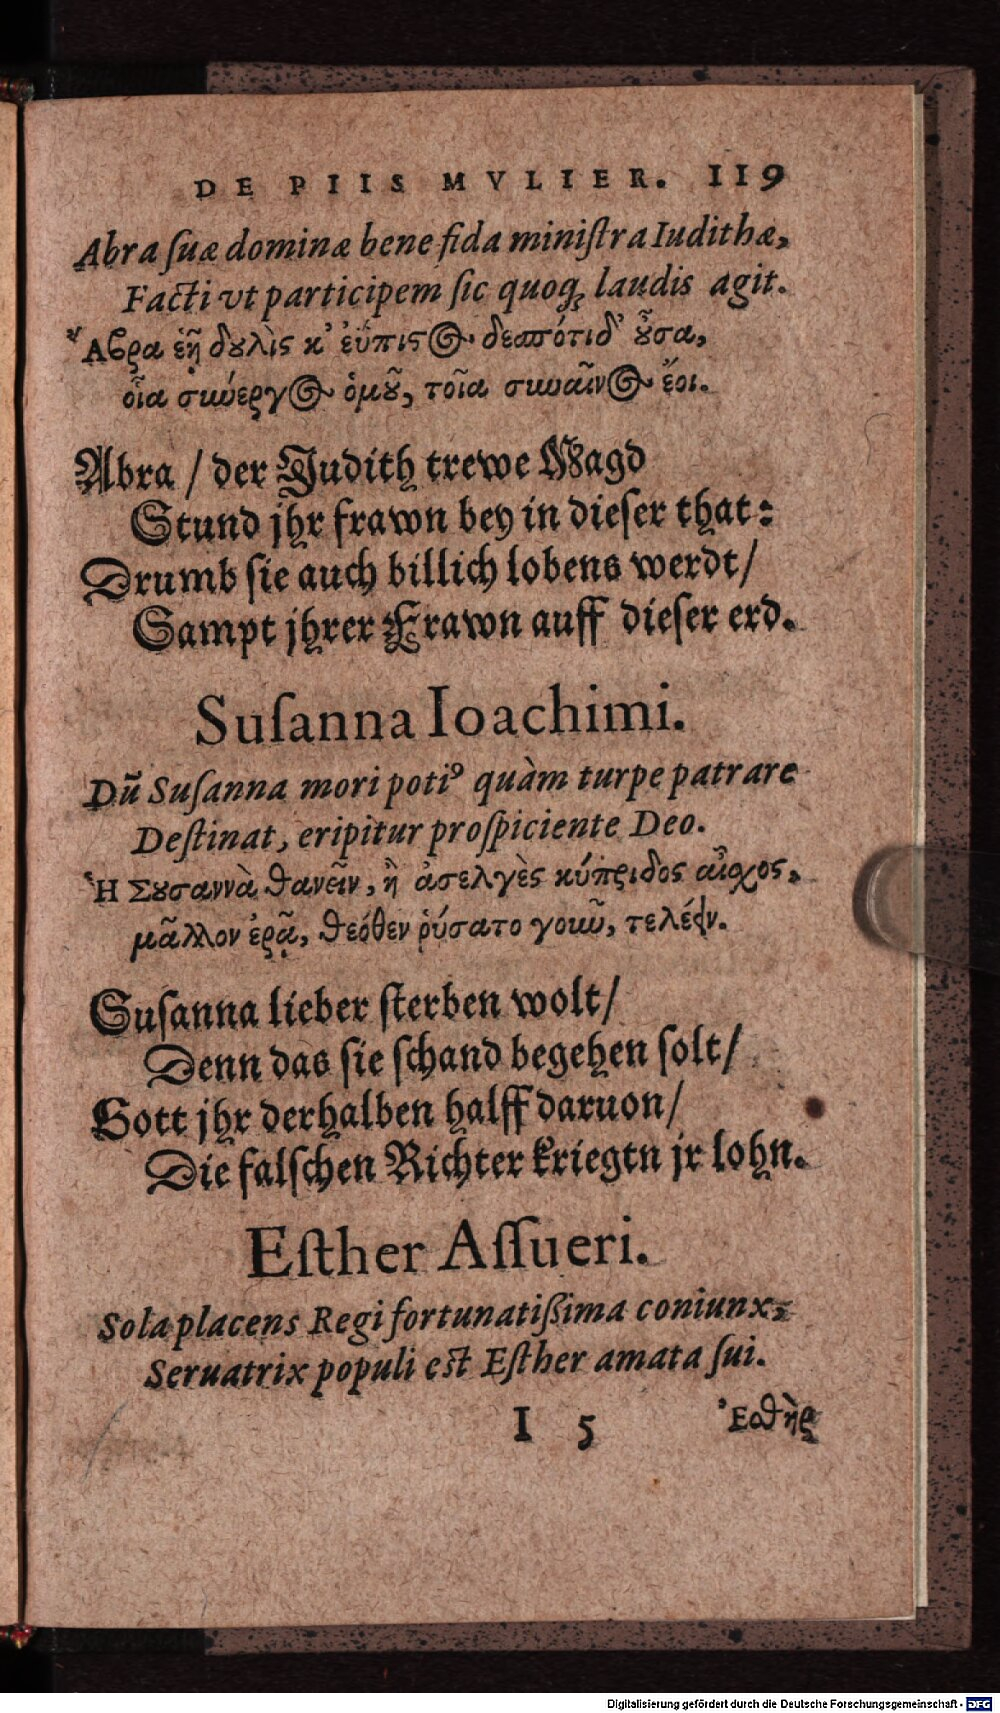 DE PIIS MVLIER. 119
Abra ſuæ dominæ bene fida miniſtra Iudithæ,
Facti vt participem ſic quoq; laudis agit.
Ἄβρα ἑῇ δουλὶς κ' ἐΰπιστος δεσπότιδ' οὖσα,
οἷα συνέργος ὁμοῦ, τοῖα συναῖνος ἔοι.
Abra / der Judith trewe Magd
Stund jhr frawn bey in dieſer that:
Drumb ſie auch billich lobens werdt /
Sampt jhrer Frawn auff dieſer erd.
Suſanna Ioachimi.
Dū Suſanna mori poti⁹ quàm turpe patrare
Deſtinat, eripitur proſpiciente Deo.
Ἡ Σουσαννὰ θανεῖν, ἢ ἀσελγὲς κύπριδος αἶσχος,
μᾶλλον ἐρᾷ, θεόθεν ῥύσατο γοιωῦ, τελέειν.
Suſanna lieber ſterben wolt /
Denn das ſie ſchand begehen ſolt /
Gott jhr derhalben halff daruon /
Die falſchen Richter kriegtn jr lohn.
Eſther Aſſueri.
Sola placens Regi fortunatiſsima coniunx,
Seruatrix populi eſt Eſther amata ſui.
I 5 Ἐσθὴρ
Digitalisierung gefördert durch die Deutsche Forschungsgemeinschaft - DFG